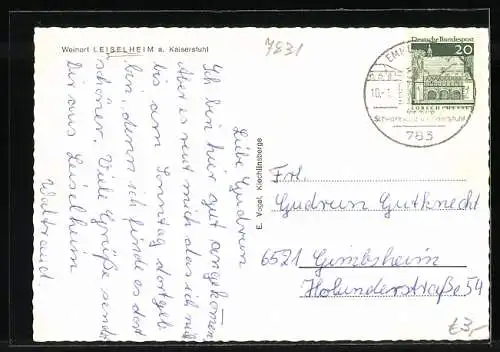 Weinort LEISELHEIM a. Kaiserstuhl
7831
Deutsche Bundespost
20
LORSCH HESSEN
783
Liebe Gudrun
Ich bin hier gut angekommen
Aber es reut mich das ich nich
bin am Sonntag dortgeb.
bin, denn ich finde es dort
schöner. Viele Grüße sendet
Dir aus Leiselheim
Waltraud.
E. Vogel, Kiechlinsberge
Frl.
Gudrun Gutknecht
6521 Gimbsheim
Hohunderstraße 54
€3,-